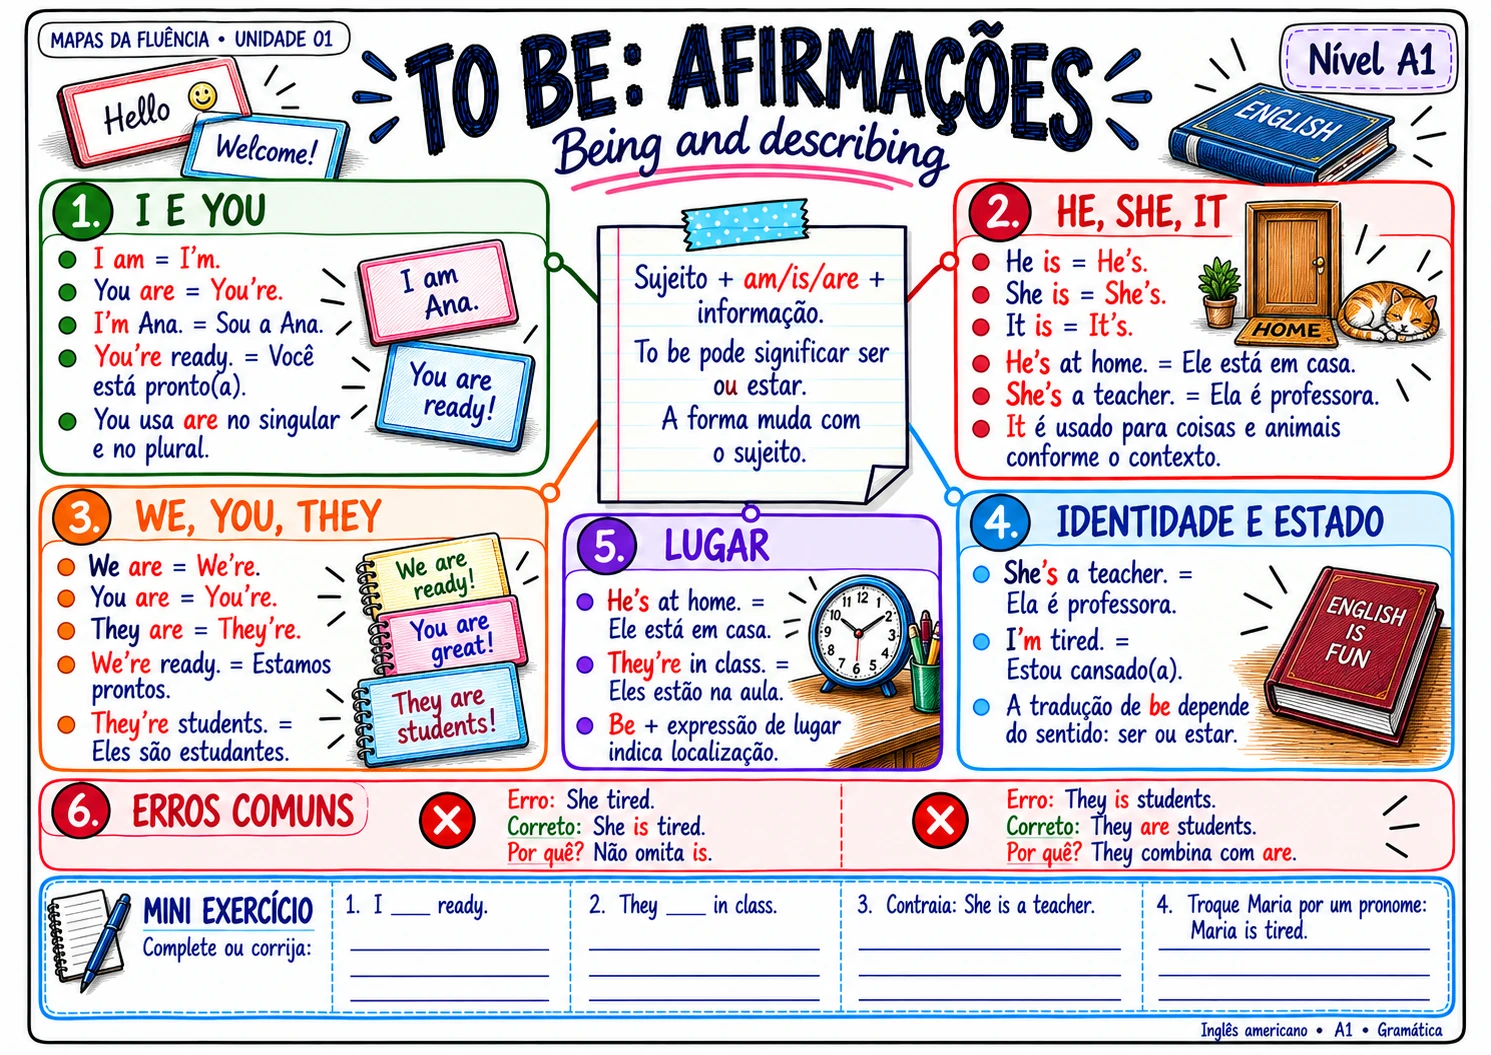 MAPAS DA FLUÊNCIA • UNIDADE 01
TO BE: AFIRMAÇÕES
Being and describing
Nível A1
Hello
Welcome!
ENGLISH
1. I E YOU
I am = I'm.
You are = You're.
I'm Ana. = Sou a Ana.
You're ready. = Você
está pronto(a).
You usa are no singular
e no plural.
I am
Ana.
You are
ready!
Sujeito + am/is/are +
informação.
To be pode significar ser
ou estar.
A forma muda com
o sujeito.
2. HE, SHE, IT
He is = He's.
She is = She's.
It is = It's.
He's at home. = Ele está em casa.
She's a teacher. = Ela é professora.
It é usado para coisas e animais
conforme o contexto.
HOME
3. WE, YOU, THEY
We are = We're.
You are = You're.
They are = They're.
We're ready. = Estamos
prontos.
They're students. =
Eles são estudantes.
We are
ready!
You are
great!
They are
students!
5. LUGAR
He's at home. =
Ele está em casa.
They're in class. =
Eles estão na aula.
Be + expressão de lugar
indica localização.
12
1
2
3
4
5
6
7
8
9
10
11
4. IDENTIDADE E ESTADO
She's a teacher. =
Ela é professora.
I'm tired. =
Estou cansado(a).
A tradução de be depende
do sentido: ser ou estar.
ENGLISH
IS
FUN
6. ERROS COMUNS
Erro: She tired.
Correto: She is tired.
Por quê? Não omita is.
Erro: They is students.
Correto: They are students.
Por quê? They combina com are.
MINI EXERCÍCIO
Complete ou corrija:
1. I ____ ready.
2. They ____ in class.
3. Contraia: She is a teacher.
4. Troque Maria por um pronome:
Maria is tired.
Inglês americano • A1 • Gramática